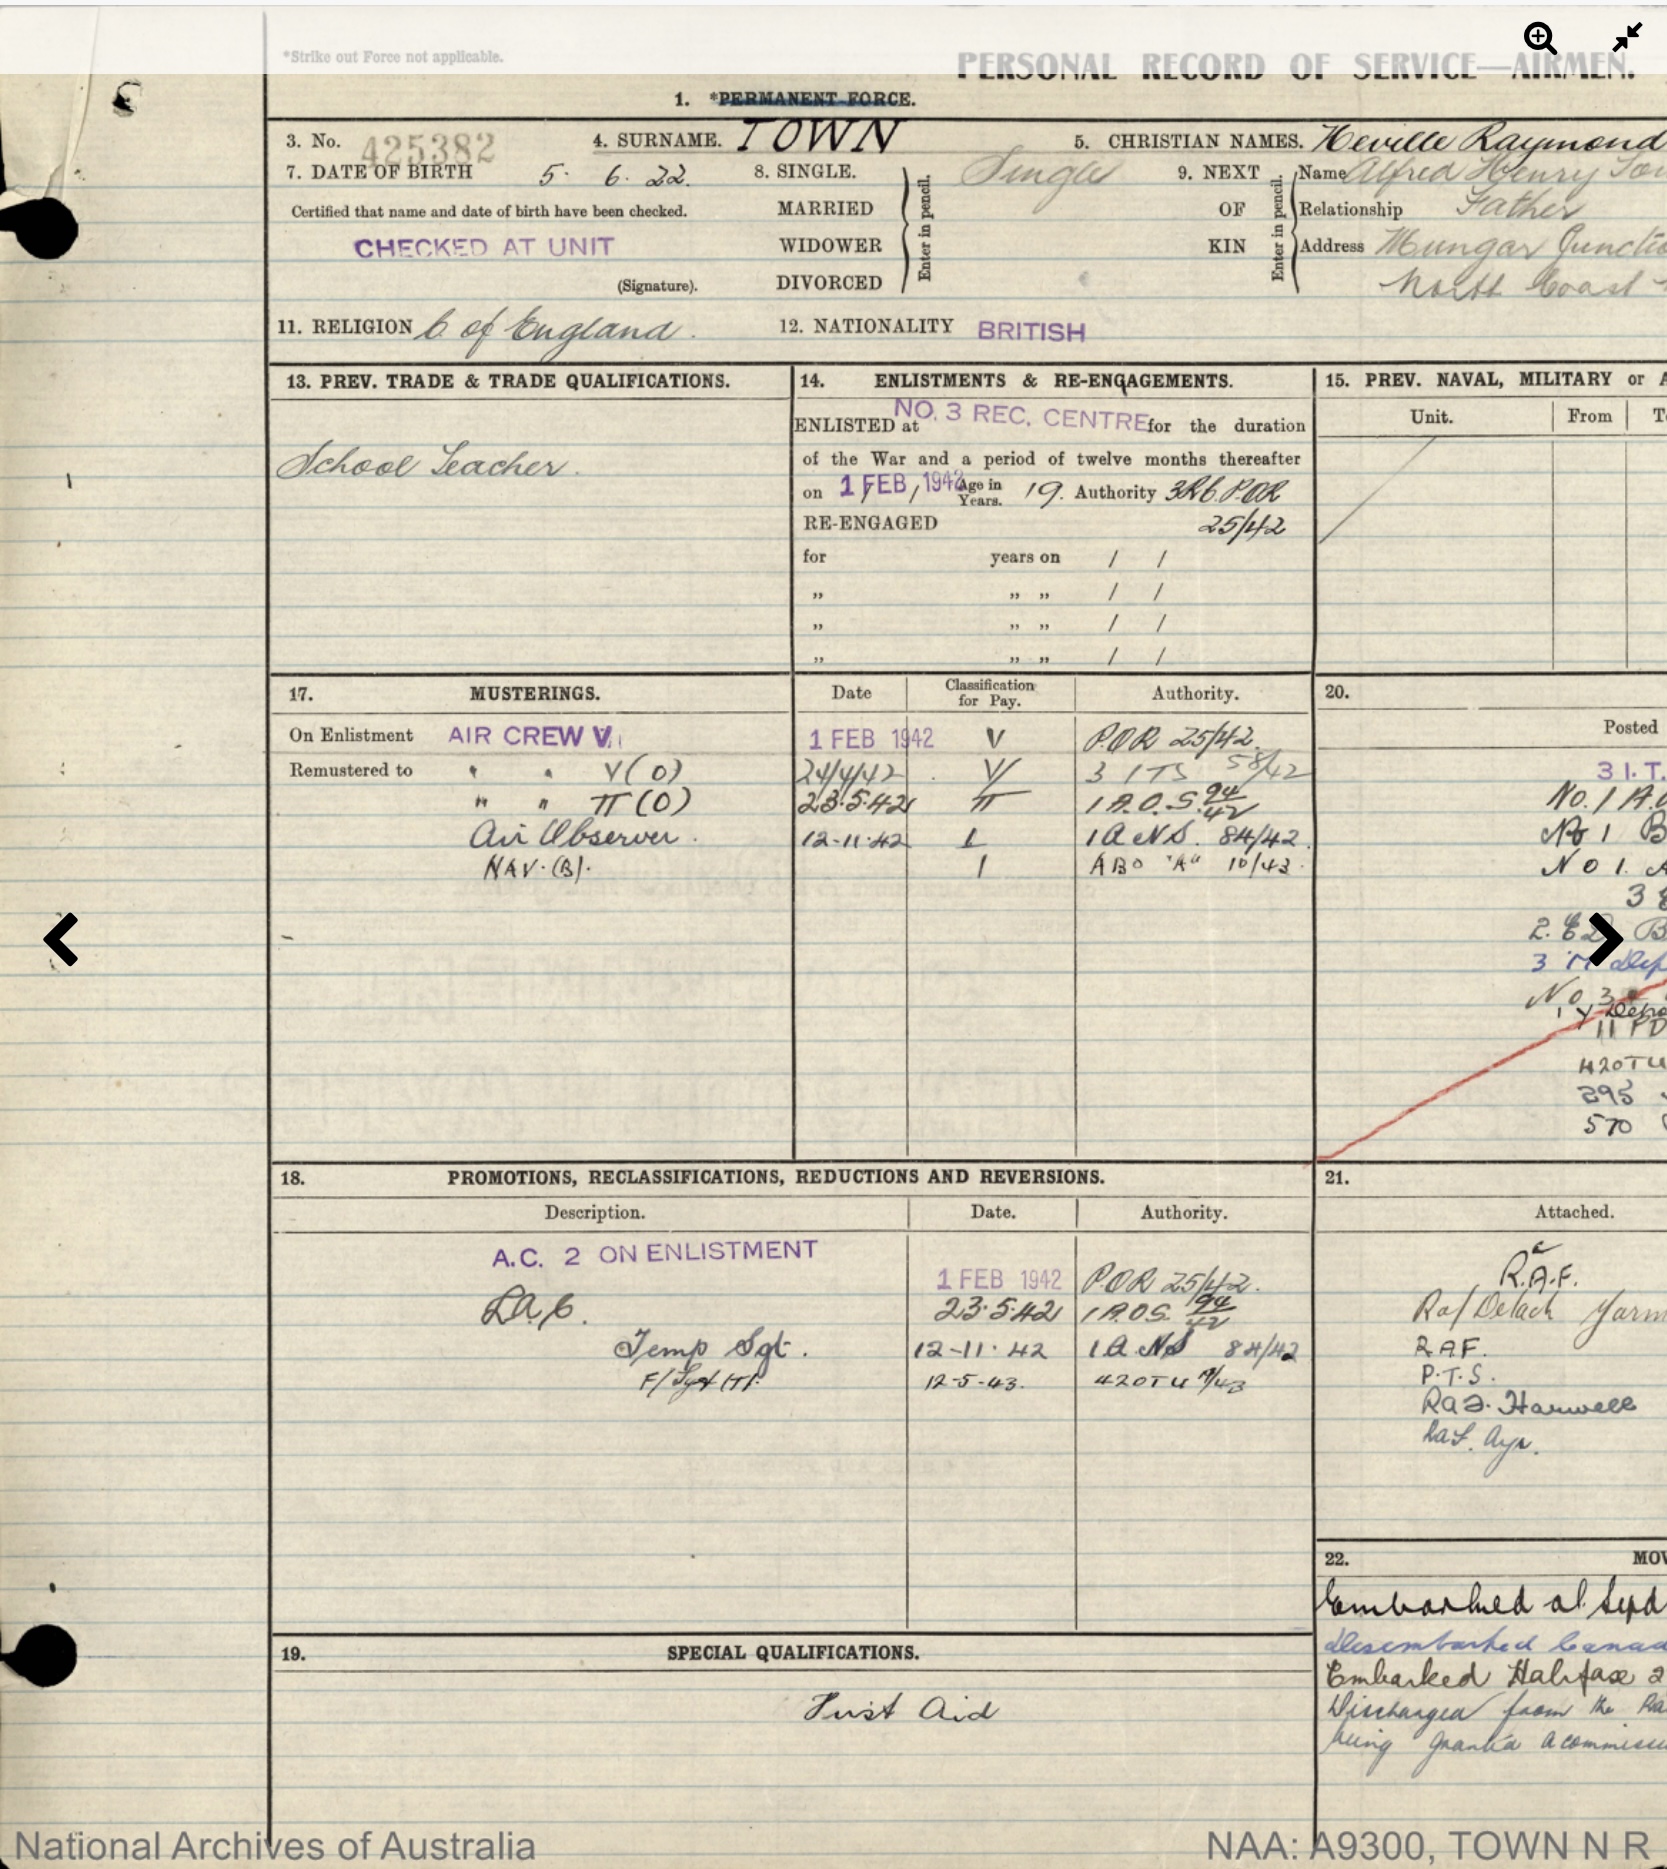 *Strike out Force not applicable.
PERSONAL RECORD OF SERVICE—AIRMEN.
1. *PERMANENT FORCE.
3. No. 425382 4. SURNAME. TOWN 5. CHRISTIAN NAMES. Neville Raymond
7. DATE OF BIRTH 5. 6. 22. 8. SINGLE. Single 9. NEXT Name Alfred Henry
Certified that name and date of birth have been checked. MARRIED Enter in pencil. OF Enter in pencil. Relationship Father
CHECKED AT UNIT WIDOWER KIN Address Mungar
(Signature). DIVORCED North Coast
11. RELIGION C. of England. 12. NATIONALITY BRITISH
13. PREV. TRADE & TRADE QUALIFICATIONS.
School Teacher.
14. ENLISTMENTS & RE-ENGAGEMENTS.
ENLISTED at NO. 3 REC. CENTRE for the duration
of the War and a period of twelve months thereafter
on 1 FEB 1942 Age in Years. 19. Authority P.O.R
RE-ENGAGED 25/42
for years on / /
„ „ „ / /
„ „ „ / /
„ „ „ / /
15. PREV. NAVAL, MILITARY or
Unit. From
17. MUSTERINGS. Date Classification for Pay. Authority.
On Enlistment AIR CREW V 1 FEB 1942 V P.O.R 25/42.
Remustered to " " V(O) 24/4/42 V 3 ITS 58/42
" " II(O) 23.5.42 II 1 A.O.S. 94/42
Air Observer. 12-11-42 I 1 A.N.S. 84/42.
NAV.(B). 1 "A" 10/43.
20.
Posted
3 I.T.
No. 1
No 1 B
No 1. A
3
2. B
3
No 3
11 PD
42OTU
295
570
18. PROMOTIONS, RECLASSIFICATIONS, REDUCTIONS AND REVERSIONS.
Description. Date. Authority.
A.C. 2 ON ENLISTMENT
1 FEB 1942 P.O.R 25/42.
L.A.C. 23.5.42 1 AOS. 94/42
Temp Sgt. 12-11-42 1 A.N.S 84/42
F/Sgt (T). 12-5-43. 42OTU
21.
Attached.
R.A.F.
Raf Detach
RAF.
P.T.S.
Raf. Harwell
Raf. Ayr.
22.
Embarked at
Disembarked
Embarked Halifax 2
Discharged from the
being granted a
19. SPECIAL QUALIFICATIONS.
First Aid
National Archives of Australia
NAA: A9300, TOWN N R